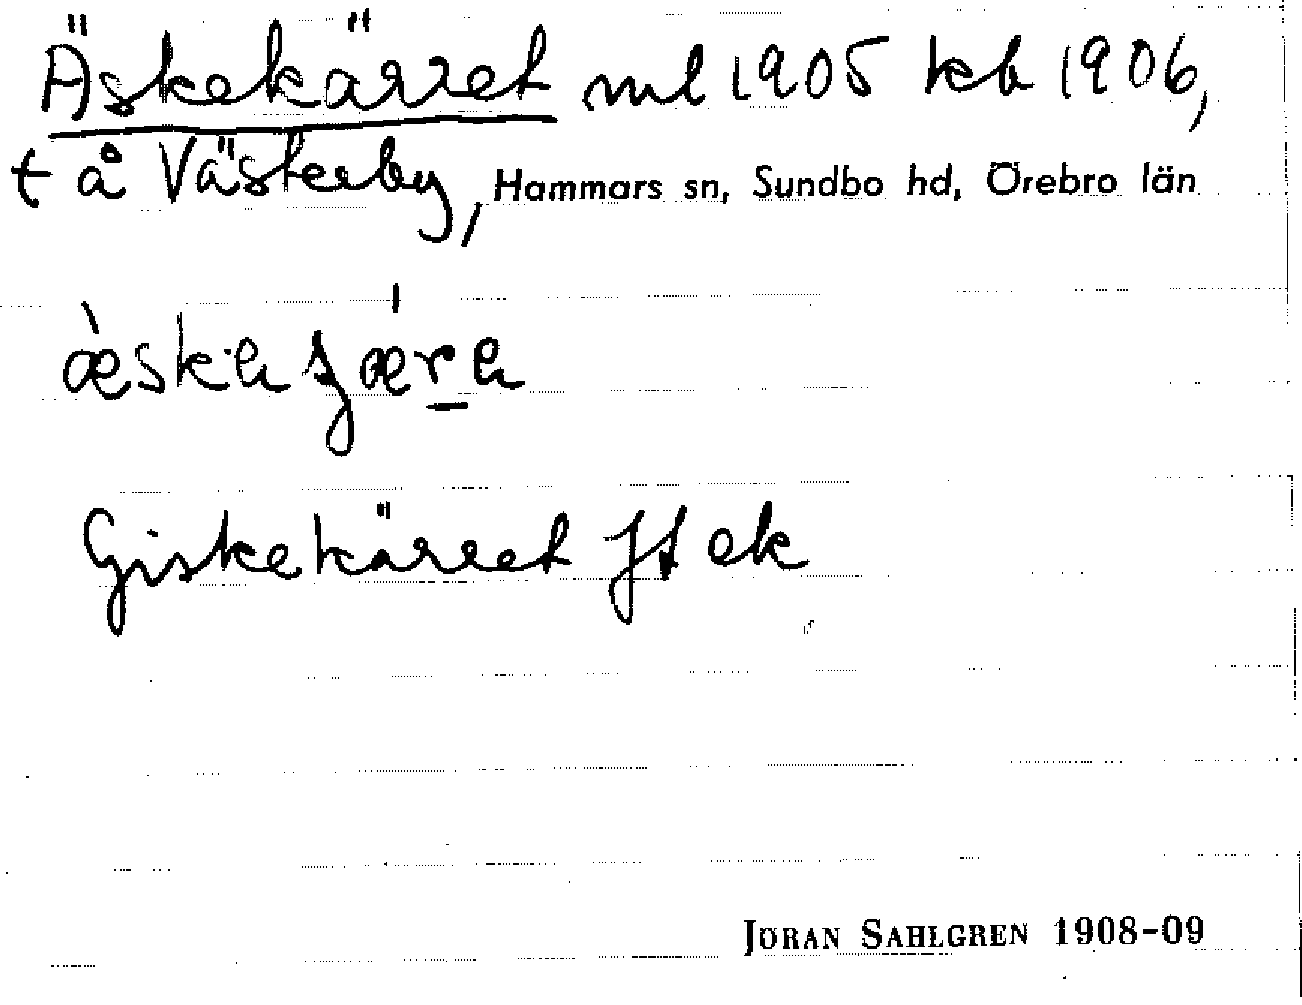 Äskekärret ml 1905 kb 1906,
t å Västerby, Hammars sn, Sundbo hd, Örebro län
Giskekärret Jt ek
JÖRAN SAHLGREN 1908-09